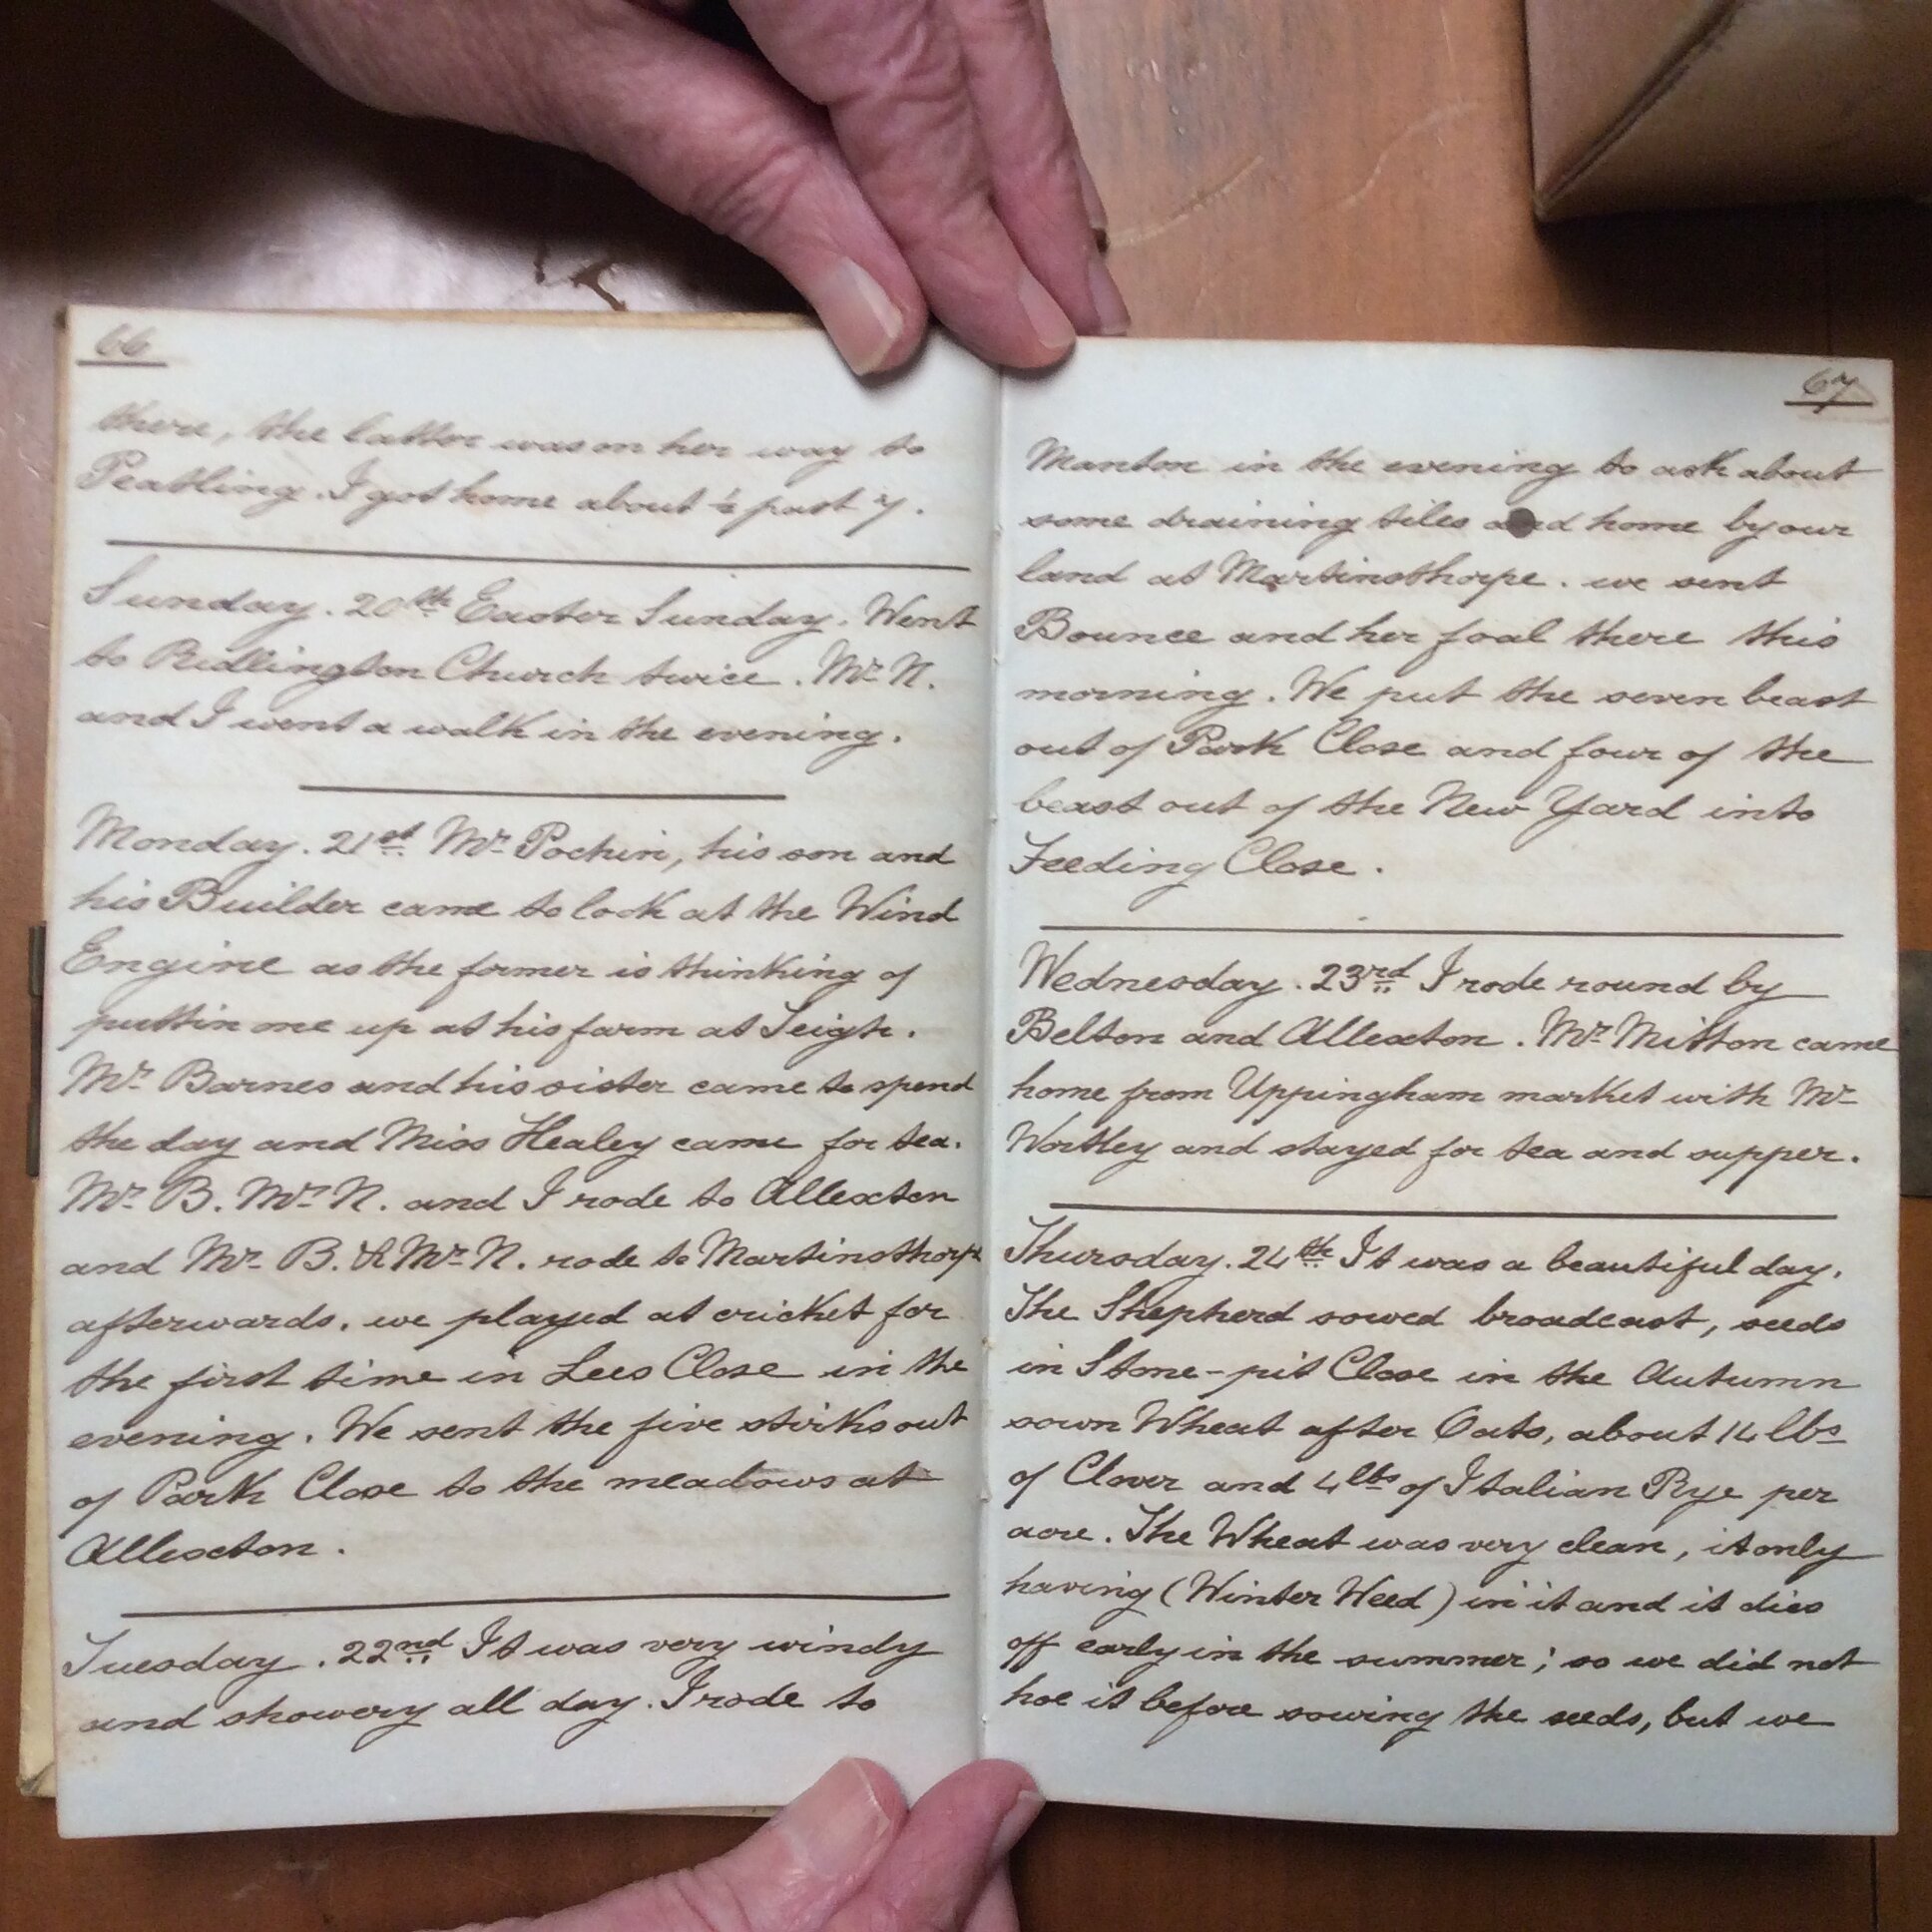 66
there, the latter was on her way to
Peatling. I got home about ½ past 7.
Sunday. 20th Easter Sunday. Went
to Ridlington Church twice. Mr N.
and I went a walk in the evening.
Monday. 21st Mr Pochin, his son and
his Builder came to look at the Wind
Engine as the former is thinking of
puttin one up at his farm at Leigh.
Mr Barnes and his sister came to spend
the day and Miss Healey came for tea.
Mr B. Mr N. and I rode to Allexton
and Mr B. & Mr N. rode to Martinsthorpe
afterwards. we played at cricket for
the first time in Lees Close in the
evening. We sent the five stirks out
of Park Close to the meadows at
Allexton.
Tuesday. 22nd It was very windy
and showery all day. I rode to
67
Manton in the evening to ask about
some draining tiles and home by our
land at Martinsthorpe. we sent
Bounce and her foal there this
morning. We put the seven beast
out of Park Close and four of the
beast out of the New Yard into
Feeding Close.
Wednesday. 23rd I rode round by
Belton and Allexton. Mr Mitton came
home from Uppingham market with Mr
Wortley and stayed for tea and supper.
Thursday. 24th It was a beautiful day.
The Shepherd sowed broadcast, seeds
in Stone-pit Close in the Autumn
sown Wheat after Oats, about 14 lbs
of Clover and 4 lbs of Italian Rye per
acre. The Wheat was very clean, it only
having (Winter Weed) in it and it dies
off early in the summer; so we did not
hoe it before sowing the seeds, but we